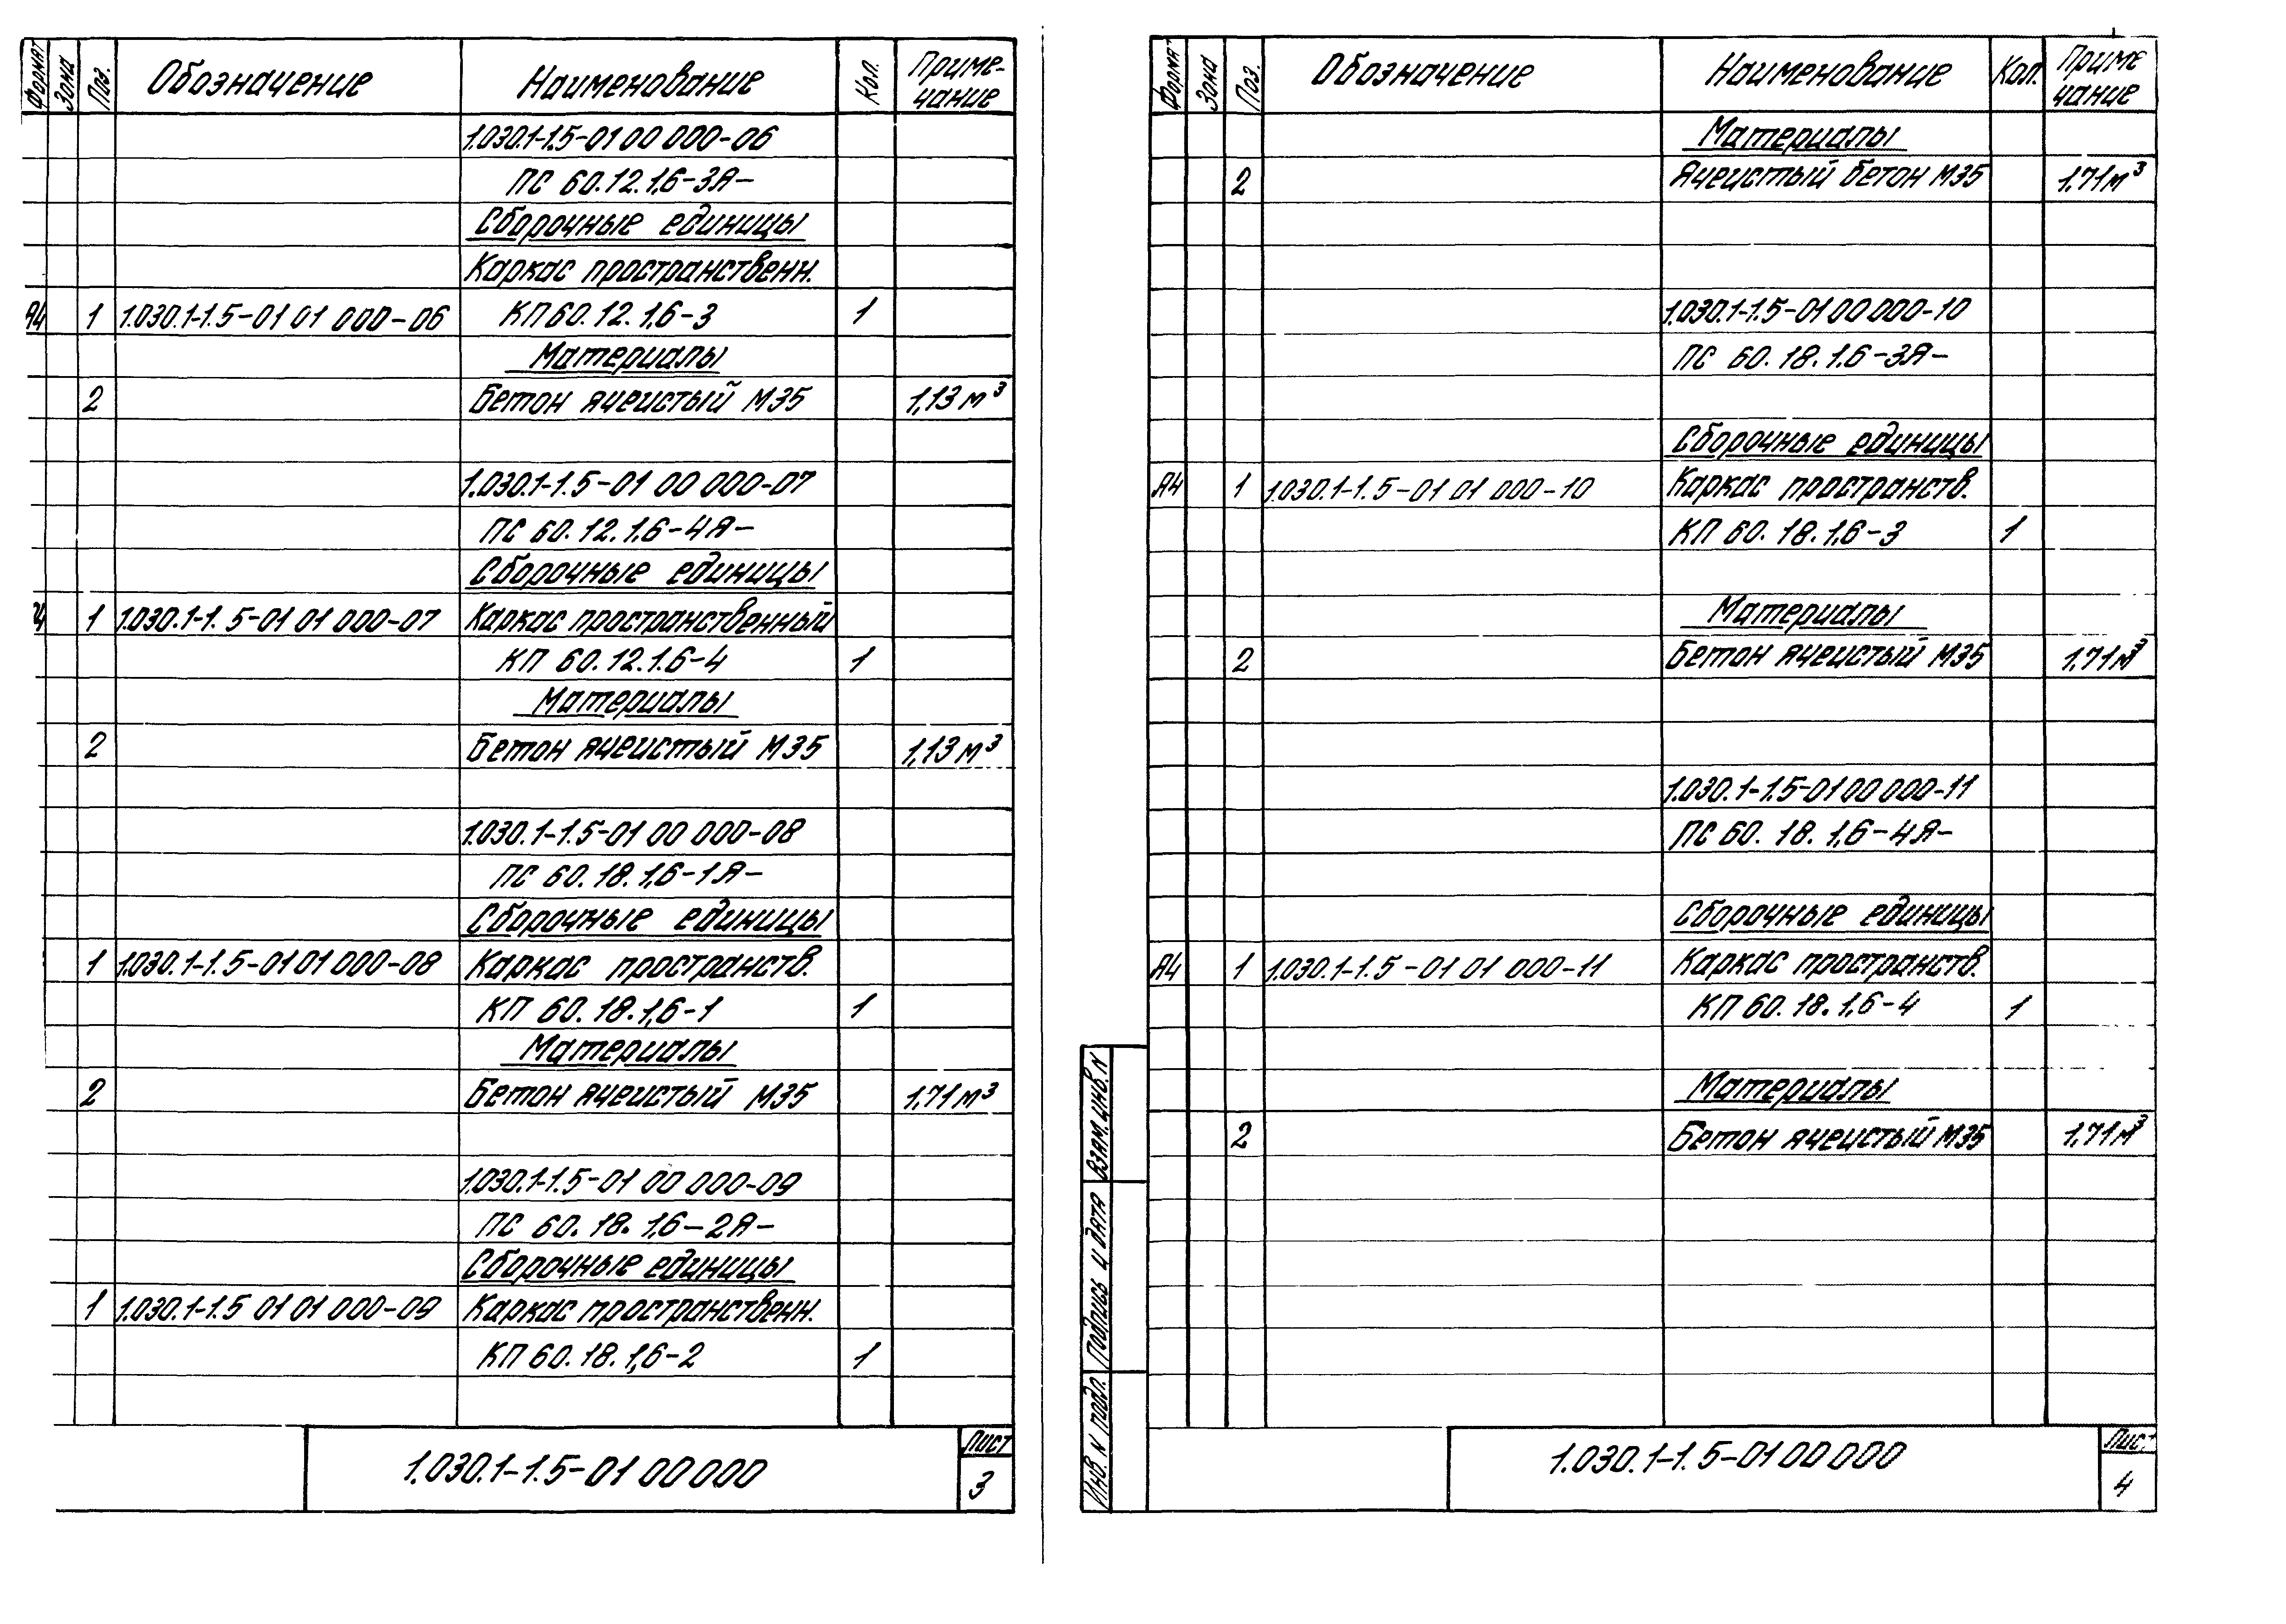 Формат Зона Поз. Обозначение Наименование Кол. Приме-
чание
1.030.1-1.5-01 00 000-06
ПС 60.12.1,6-3Я-
Сборочные единицы
Каркас пространственн.
А4 1 1.030.1-1.5-01 01 000-06 КП 60.12.1,6-3 1
Материалы
2 Бетон ячеистый М35 1,13 м³
1.030.1-1.5-01 00 000-07
ПС 60.12.1,6-4Я-
Сборочные единицы
1 1.030.1-1.5-01 01 000-07 Каркас пространственный
КП 60.12.1.6-4 1
Материалы
2 Бетон ячеистый М35 1,13 м³
1.030.1-1.5-01 00 000-08
ПС 60.18.1,6-1Я-
Сборочные единицы
1 1.030.1-1.5-01 01 000-08 Каркас пространств.
КП 60.18.1,6-1 1
Материалы
2 Бетон ячеистый М35 1,71 м³
1.030.1-1.5-01 00 000-09
ПС 60.18.1,6-2Я-
Сборочные единицы
1 1.030.1-1.5 01 01 000-09 Каркас пространственн.
КП 60.18.1,6-2 1
1.030.1-1.5-01 00 000
Лист
3
Формат Зона Поз. Обозначение Наименование Кол. Приме
чание
Материалы
2 Ячеистый бетон М35 1,71 м³
1.030.1-1.5-01 00 000-10
ПС 60.18.1,6-3Я-
Сборочные единицы
А4 1 1.030.1-1.5-01 01 000-10 Каркас пространств.
КП 60.18.1,6-3 1
Материалы
2 Бетон ячеистый М35 1,71 м³
1.030.1-1.5-01 00 000-11
ПС 60.18.1,6-4Я-
Сборочные единицы
А4 1 1.030.1-1.5-01 01 000-11 Каркас пространств.
КП 60.18.1,6-4 1
Материалы
2 Бетон ячеистый М35 1,71 м³
Взам. инв. N
Подпись и дата
Инв. N подл.
1.030.1-1.5-01 00 000
Лист
4